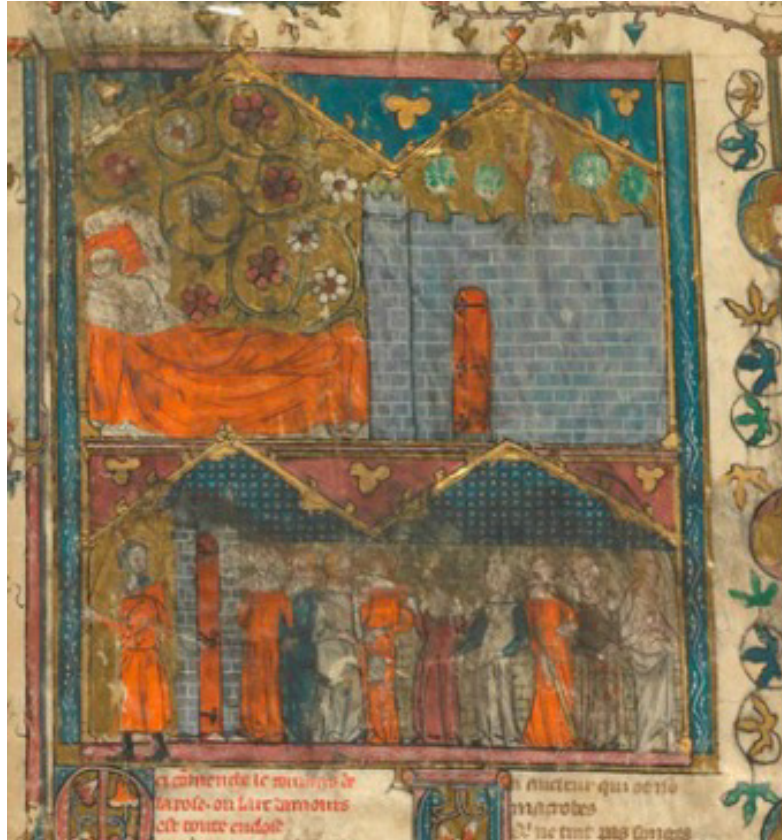 ci cōmence le rommās de
la rose. ou lart damours
est toute enclose
aucteur qui ot nō
macrobes
Qͥ ne tint pas songes